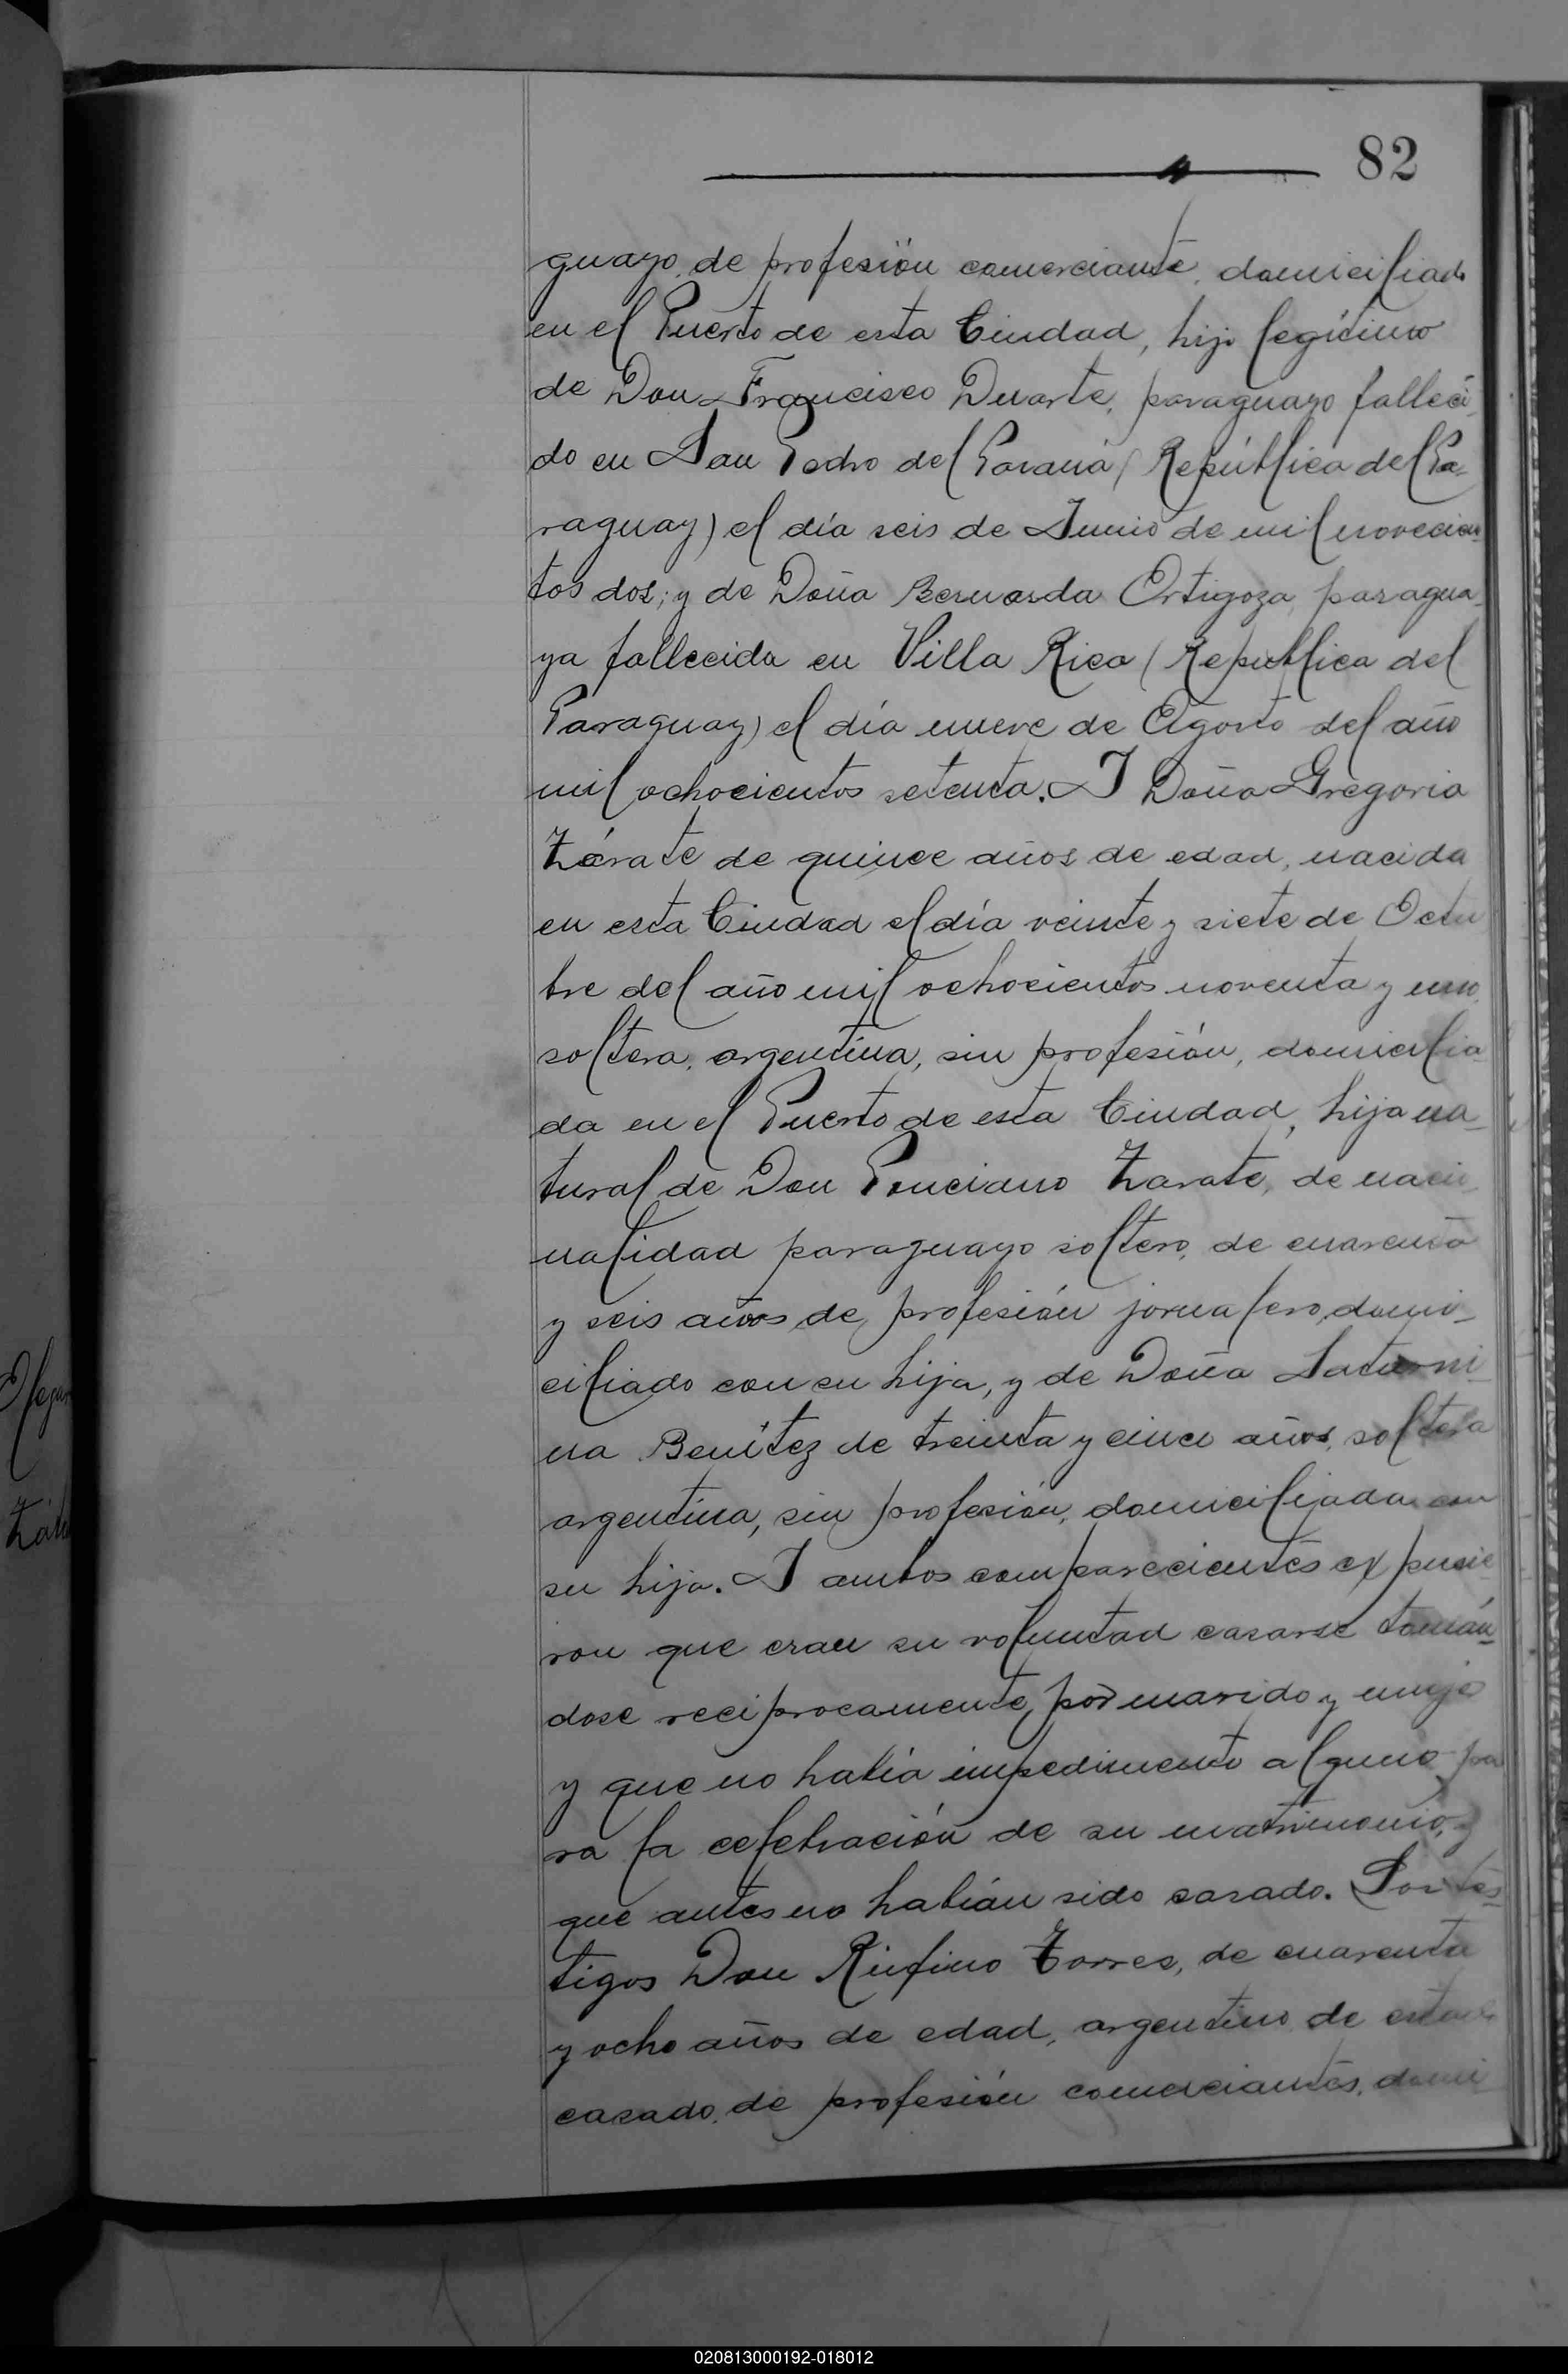 82
guayo, de profesión comerciante, domiciliado
en el Puerto de esta Ciudad, hijo legítimo
de Don Francisco Duarte, paraguayo falleci-
do en San Pedro del Paraná (República del Pa-
raguay) el día seis de Junio de mil novecien-
tos dos; y de Doña Bernarda Ortigoza, paragua-
ya fallecida en Villa Rica (Republica del
Paraguay) el día nueve de Agosto del año
mil ochocientos setenta. Y Doña Gregoria
Zárate de quince años de edad, nacida
en esta Ciudad el día veinte y siete de Octu
bre del año mil ochocientos noventa y uno,
soltera, argentina, sin profesión, domicilia-
da en el Puerto de esta Ciudad, hija na-
tural de Don Ponciano Zarate, de nacio-
nalidad paraguayo soltero, de cuarenta
y seis años de profesión jornalero, domi-
ciliado con su hija, y de Doña Saturni-
na Benítez de treinta y cinco años, soltera
argentina, sin profesión, domiciliada con
su hija. Y ambos comparecientes expusie-
ron que eran su voluntad casarse tomán-
dose reciprocamente, por marido y mujer
y que no había impedimento alguno pa
ra la celebración de su matrimonio, y
que antes no habían sido casado. Son tes-
tigos Don Rufino Torres, de cuarenta
y ocho años de edad, argentino de estado
casado, de profesión comerciantes, domi-
Zára
020813000192-018012